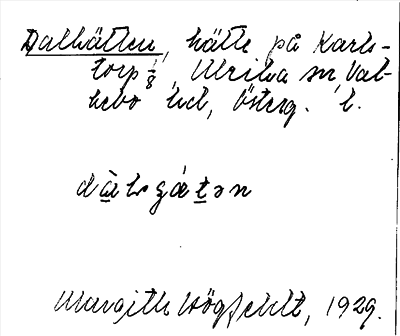 Dalhätten, hätte på Karls-
torp 1/8, Ulrika sn, Val-
kebo hd, Österg. l.
Margith Högfeldt, 1929.